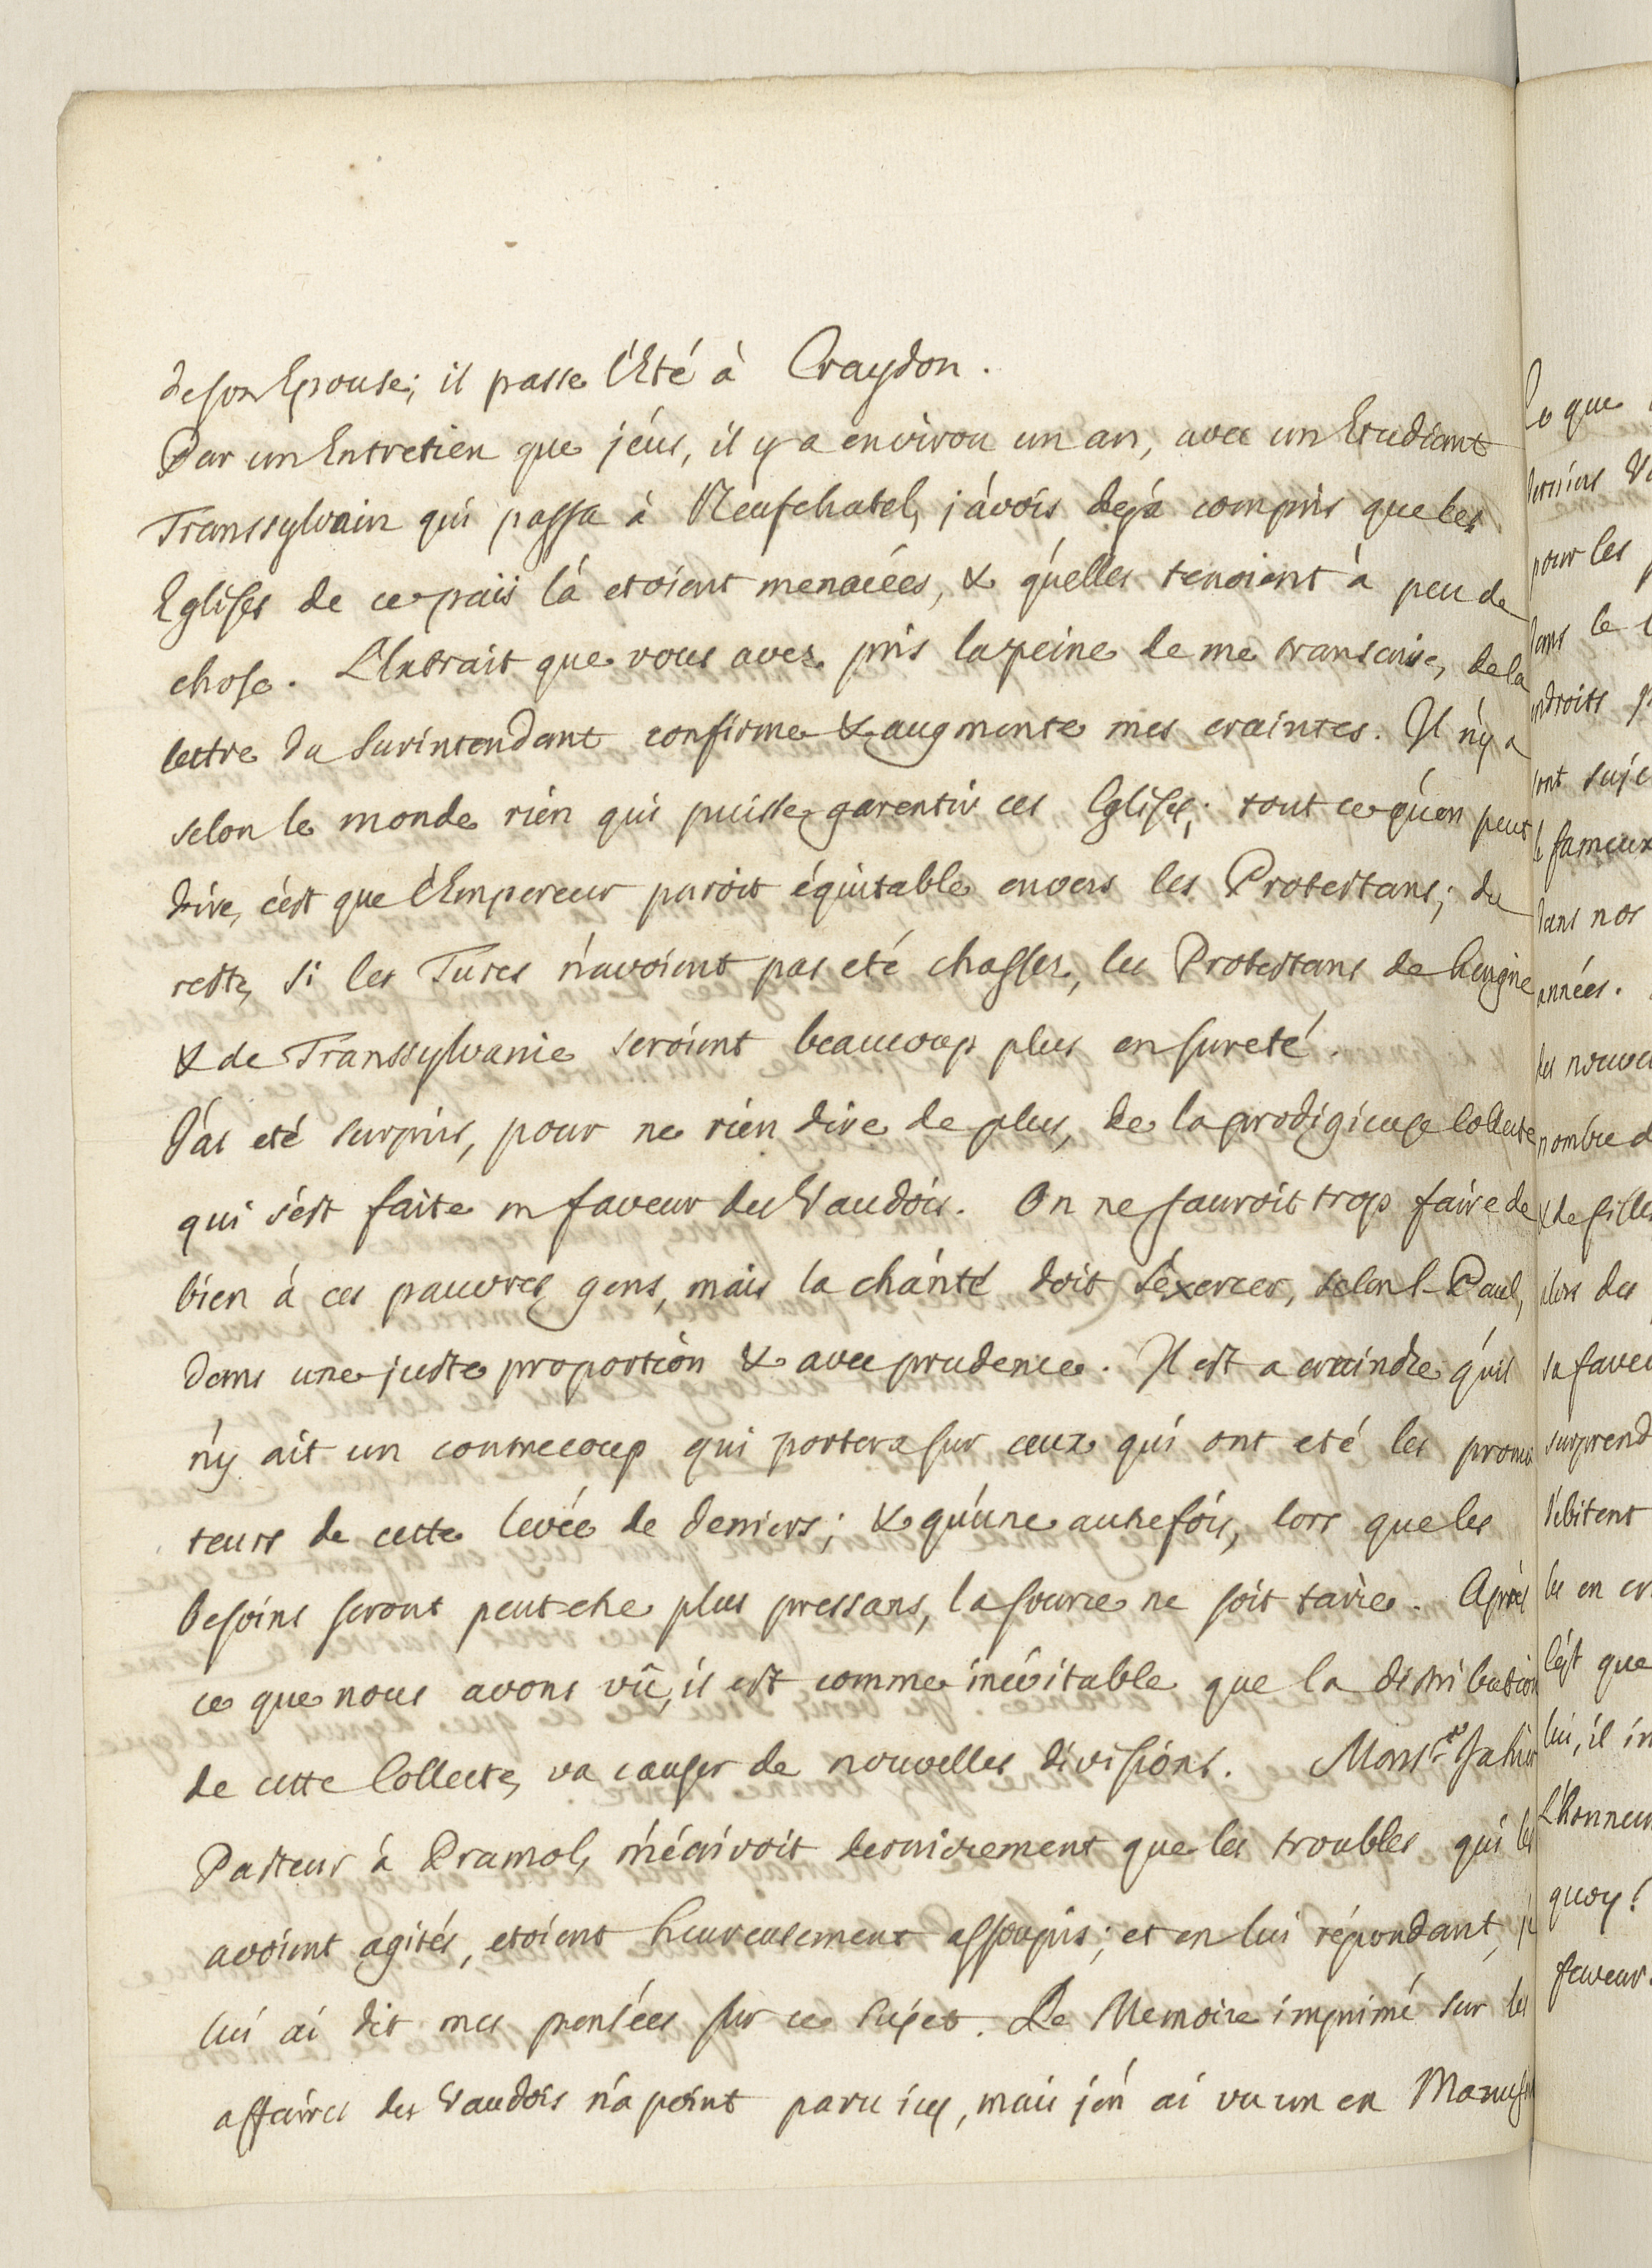 de son Epouse; il passe l'Eté à Craydon.
Par un Entretien que j'éus, il y a environ un an, avec un Etudiant
Transsylvain qui passa à Neufchatel, j'avois dejà compris que les
Eglises de ce païs là etoient menacées, & qu'elles tenoient à peu de
chose. L'Extrait que vous avez pris la peine de me transcrire, de la
lettre du Surintendant confirme & augmente mes craintes. Il n'y a
selon le monde rien qui puisse garentir ces Eglises; tout ce qu'on peut
dire, c'est que l'Empereur paroit équitable envers les Protestans; du
reste, si les Turcs n'avoient pas eté chassez, les Protestans de Hongrie
& de Transsylvanie seroient beaucoup plus en sureté.
J'ai eté surpris, pour ne rien dire de plus, de la prodigieuse Collecte
qui s'est faite en faveur des Vaudois. On ne sauroit trop faire de
bien à ces pauvres gens, mais la charité doit s'exercer, selon S. Paul,
dans une juste proportion & avec prudence. Il est a craindre qu'il
n'y ait un contrecoup qui portera sur ceux qui ont eté les promo
teurs de cette levée de deniers; & qu'une autre fois, lors que les
besoins seront peut etre plus pressans, la source ne soit tarie. Après
ce que nous avons vû, il est comme inévitable que la distribution
de cette Collecte, va causer de nouvelles divisions. Monsr. Jahier
Pasteur à Pramol, m'écrivoit dernierement que les troubles qui les
avoient agités, etoient heureusement assoupis; et en lui répondant, je
lui ai dit mes pensées sur ce sujet. Le Memoire imprimé sur les
affaires des Vaudois n'a point paru icy, mais j'en ai vu un en Manus
Ce que
derniers
pour les
dans le
endroits
sont suje
le fameux
dans nos
années.
des nouve
nombre d
& de fille
alors des
sa faveu
surprend
débitent
les en
C'est que
lui, il in
L'honneur
quoy!
faveur.